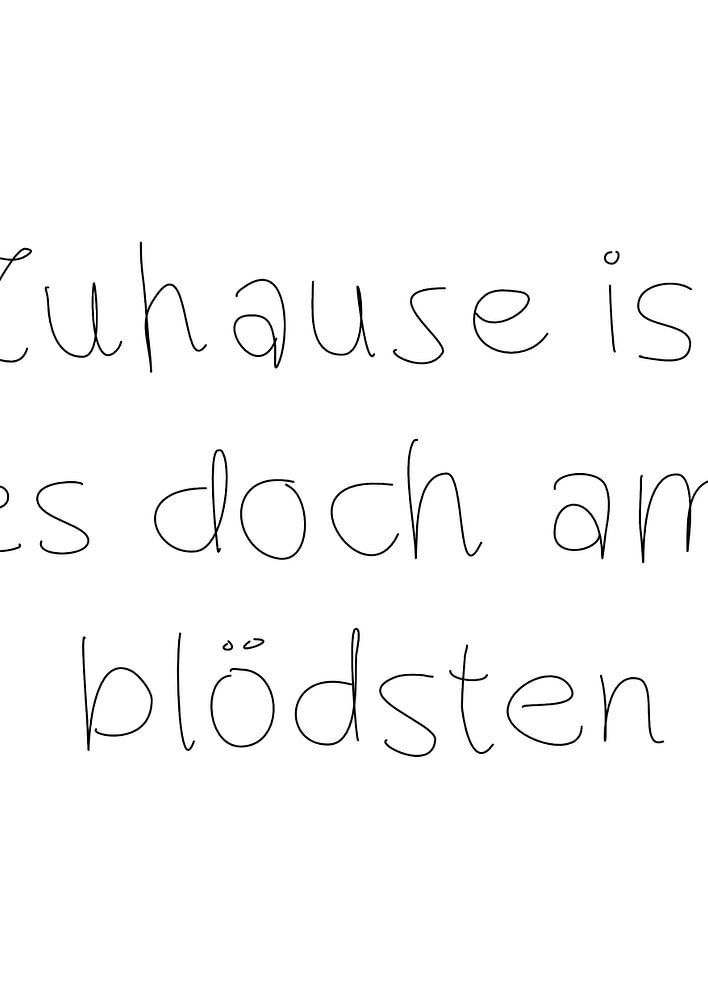 Zuhause is
es doch am
blödsten